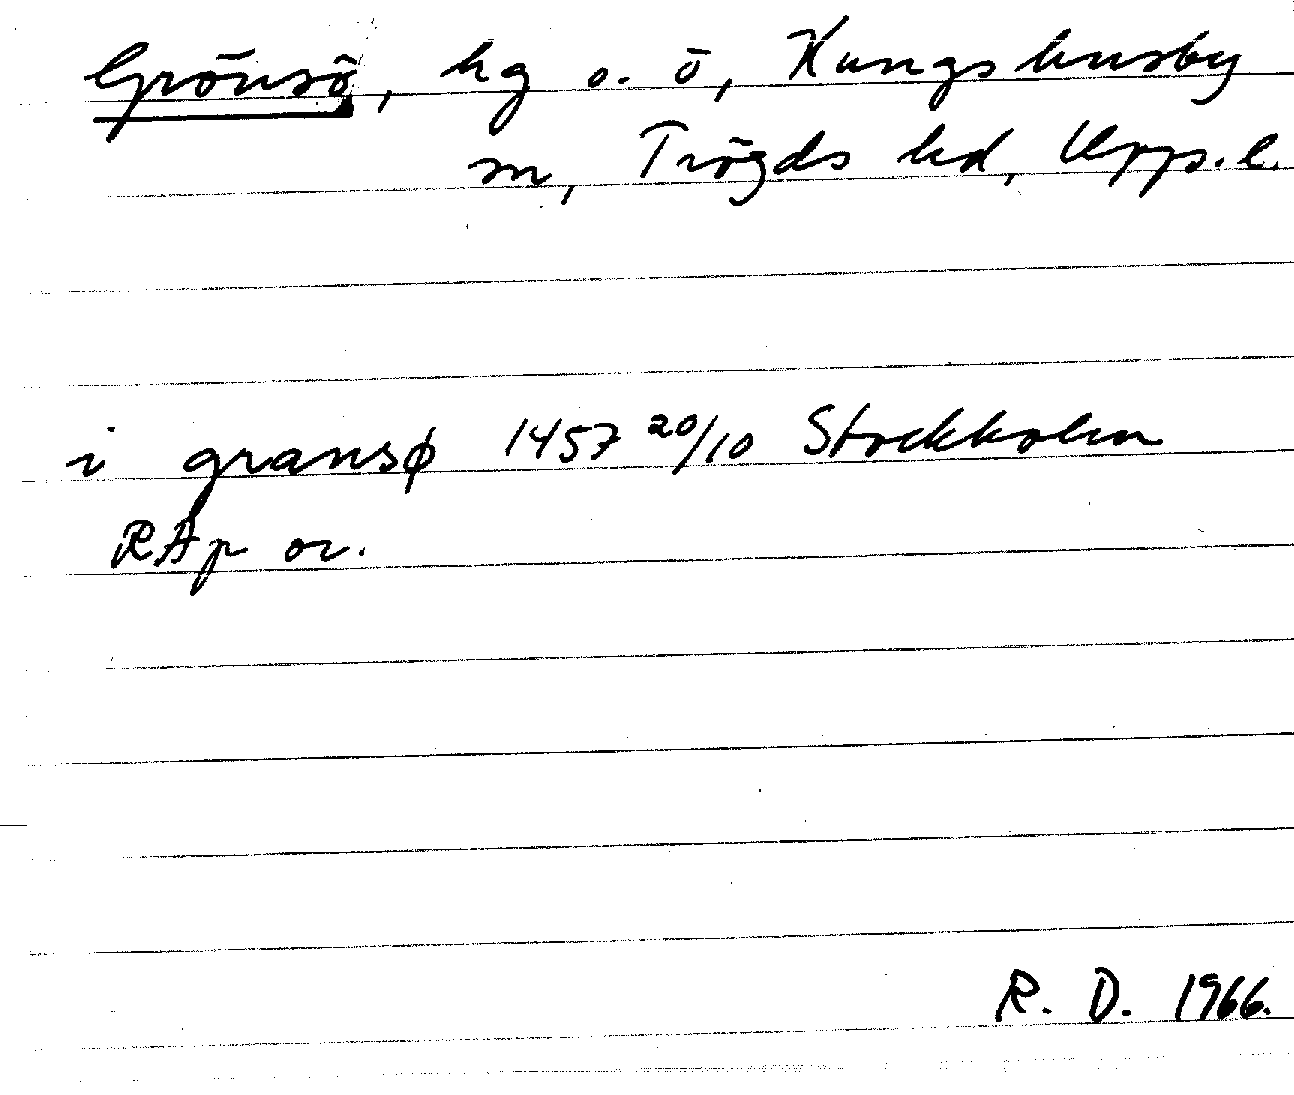 Grönsö, hg o. ö, Kungshusby
sn, Trögds hd, Upps. l.
i gransø 1457 20/10 Stockholm
RAp or.
R. D. 1966.